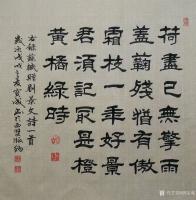 荷盡已無擎雨
蓋蘜殘猶有傲
霜枝一年好景
君須記最是橙
黃橘綠時
右錄蘇軾贈劉景文詩一首
歲次戊戌之夏